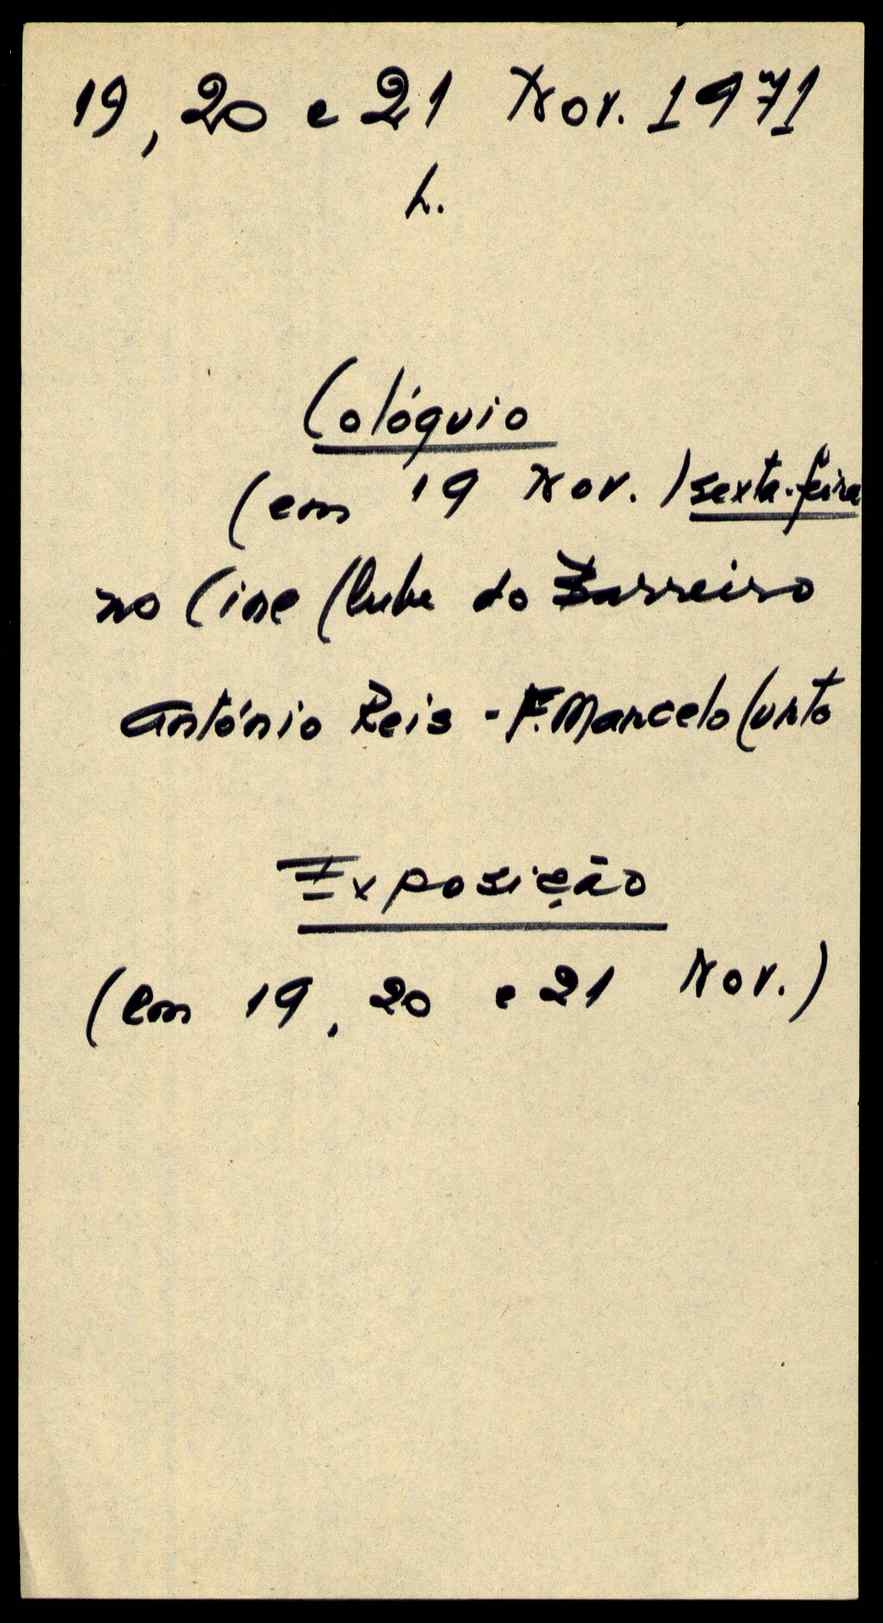 19, 20 e 21 Nov. 1971
h.
Colóquio
(em 19 Nov.) sexta-feira
no Cine Clube do Barreiro
António Reis - F. Marcelo Curto
Exposição
(em 19, 20 e 21 Nov.)